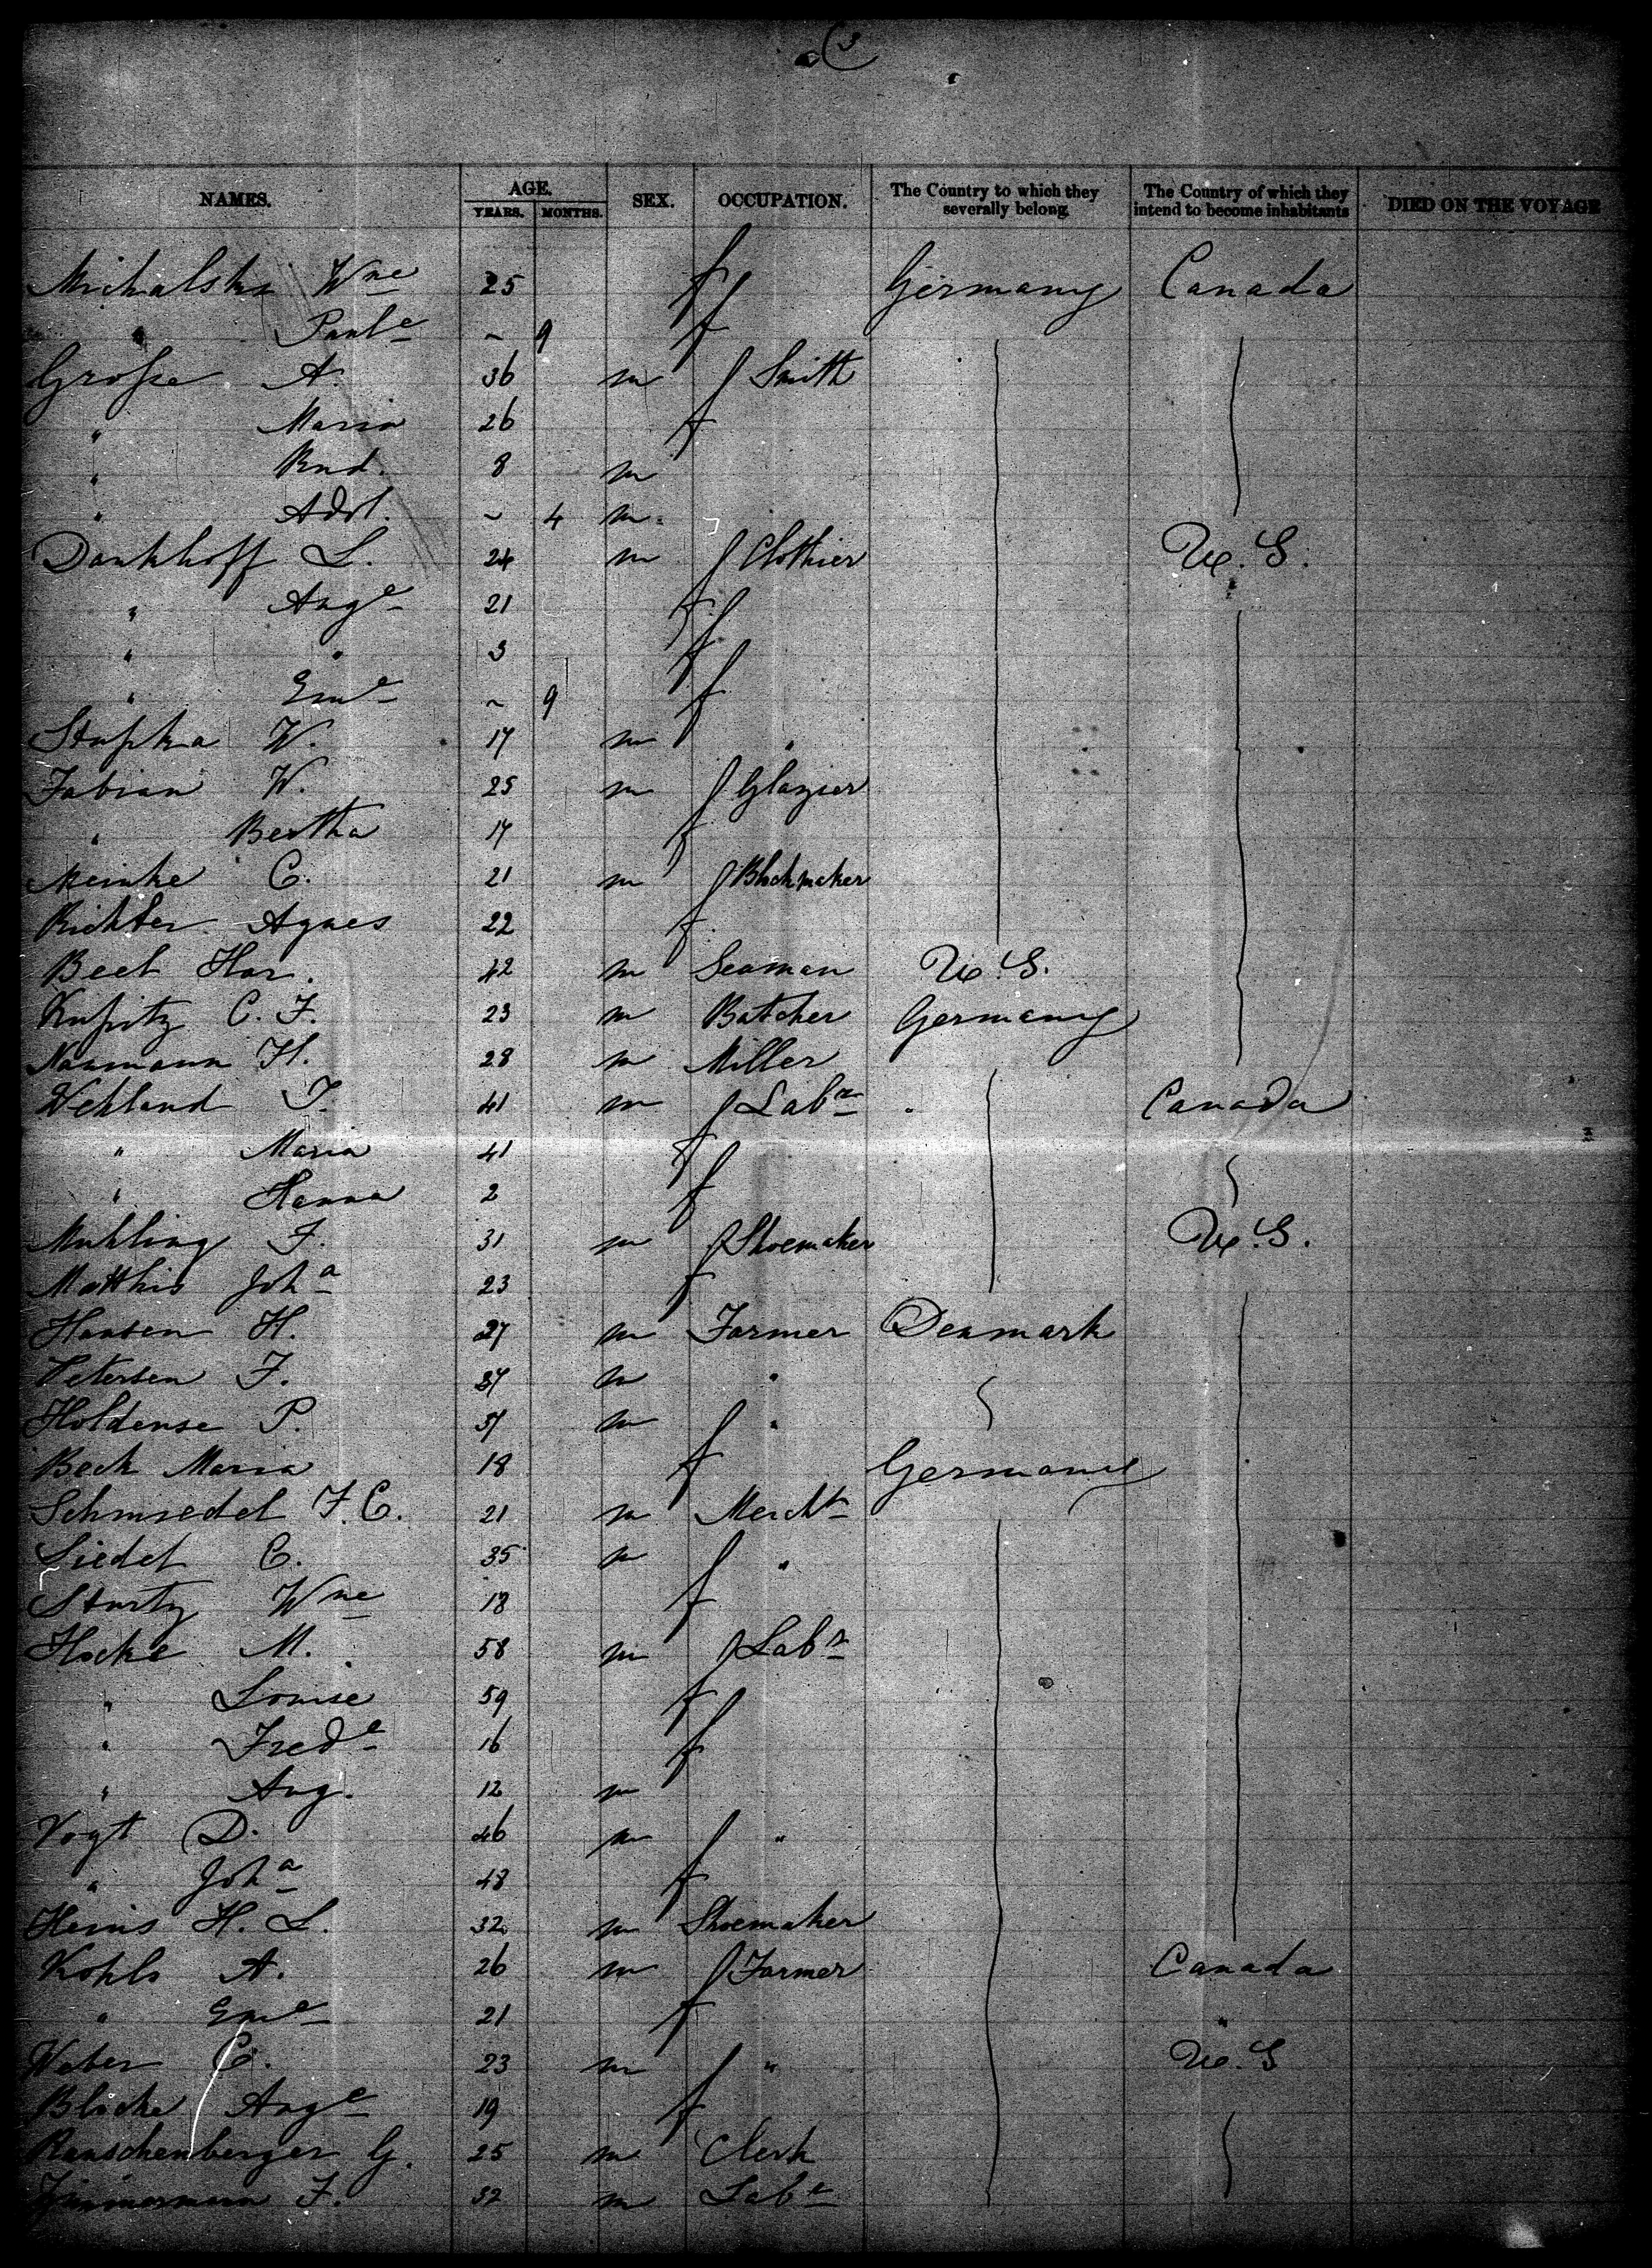 3
NAMES. AGE. YEARS. MONTHS. SEX. OCCUPATION. The Country to which they severally belong. The Country of which they intend to become inhabitants DIED ON THE VOYAGE
Michalska Wne 25 f Germany Canada
" Paule ~ 9 f
Große A. 36 m Smith
" Maria 26 f
" Rud. 8 m
" Adol. ~ 4 m
Dankhoff L. 24 m Clothier U. S.
" Auge 21 f
" " 3 f
" Eme ~ 9 f
Stupka W. 17 m "
Fabian W. 25 m Glazier
" Bertha 17 f
Meinke C. 21 m Blockmaker
Richter Agnes 22 f
Beet Har. 42 m Seaman U. S.
Kupitz C. F. 23 m Butcher Germany
Naumann H. 28 m Miller
Wehland J. 41 m Labr Canada
" Maria 41 f
" Hanna 2 f
Muhling F. 31 m Shoemaker U. S.
Matthis Joha 23 f
Hansen H. 27 m Farmer Denmark
Petersen F. 37 m "
Holdense P. 37 m "
Beck Maria 18 f Germany
Schmiedel F. C. 21 m Mercht
Siedel C. 35 m "
Sturtz Wne 18 f
Hocke M. 58 m Labr
" Louise 59 f
" Frede 16 f
" Aug. 12 m
Vogt D. 46 m "
" Joha 48 f
Heins H. L. 32 m Shoemaker
Kohls A. 26 m Farmer Canada
" Eme 21 f "
Weber C. 23 m " U. S
Blocke Auge 19 f
Rauschenberger G. 25 m Clerk
Zimmermann F. 32 m Labr